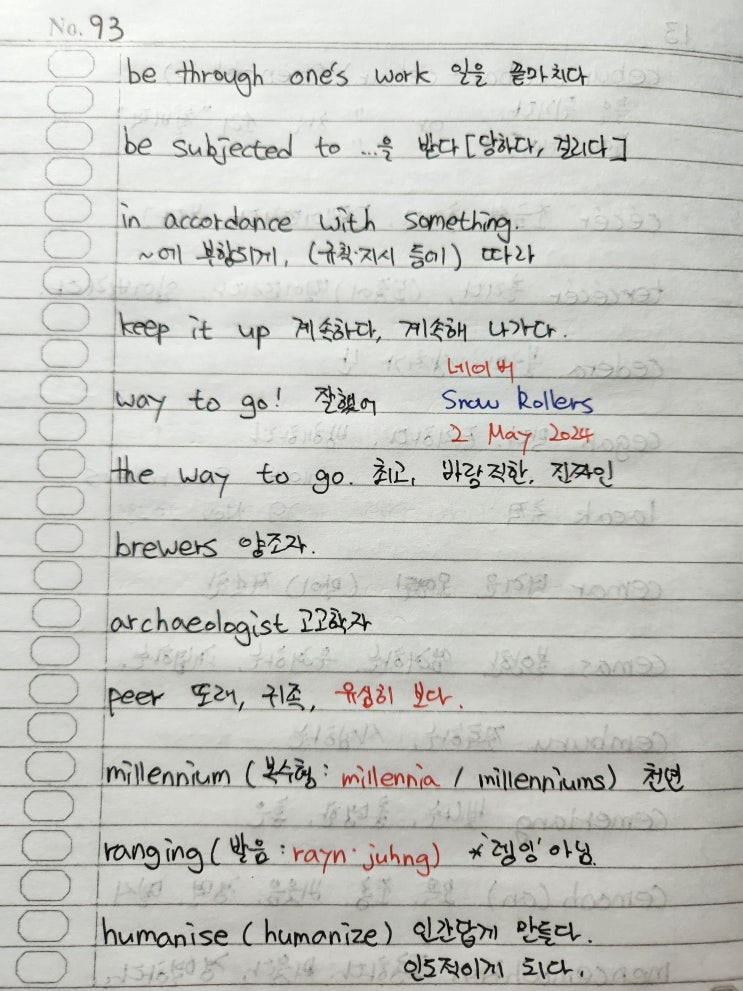 No. 93
be through one's work 일을 끝마치다
be subjected to ...을 받다 [당하다, 걸리다]
in accordance with something.
~에 부합되게, (규칙·지시 등에) 따라
keep it up 계속하다, 계속해 나가다.
네이버
way to go! 잘했어 Snow Rollers
2 May 2024
the way to go. 최고, 바람직한, 진짜인
brewers 양조자.
archaeologist 고고학자
peer 또래, 귀족, 유심히 보다.
millennium (복수형: millennia / millenniums) 천년
ranging (발음: rayn·juhng) * '렝잉' 아님.
humanise (humanize) 인간답게 만들다.
인도적이게 되다.